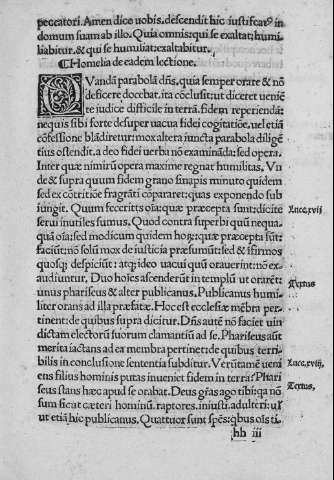 peccatori. Amen dico uobis, descendit hic iustificatꝰ in
domum suam ab illo. Quia omnis, qui se exaltat; humi
liabitur, & qui se humiliat: exaltabitur.
¶ Homelia de eadem lectione.
QVandā parabolā dñs, quia semper orare & nō
deficere docebat, ita cōclusit: ut diceret uenien
te iudice difficile in terra, fidem reperiendā:
ne quis sibi forte de super uacua fidei cogitatiōe, uel etiā
cōfessione blādiretur: mox altera iuncta parabola diligē
tius ostendit, a deo fidei uerba nō examināda: sed opera.
Inter quæ nimirū opera maxime regnat humilitas. Vn
de & supra quum fidem grano sinapis minuto quidem
sed ex cōtritiōe fragrāti cōpararet: quas exponendo sub
iungit. Quum feceritis oīa quæ præcepta sunt: dicite
serui inutiles sumus. Quod contra superbi quū nequa
quā oīa: sed modicum quidem hoꝝ: quæ præcepta sūt:
faciūt: nō solū mox de iusticia præsumūt: sed & ifirmos
quosqȝ despiciūt: atqȝ ideo uacui quū orauerint: nō ex
audiuntur. Duo hoīes ascenderūt in templū ut orarēt:
unus phariseus & alter publicanus. Publicanus humi
liter orans ad illa præfatæ. Hoc est ecclesiæ mēbra per
tinent: de quibus supra dicitur. Dñs autē nō faciet uin
dictam electorū suorum clamantiū ad se. Phariseus aūt
merita iactans ad ea membra pertinet: de quibus terri
bilis in conclusione sententia subditur. Verūtamē ueni
ens filius hominis putas inueniet fidem in terra? Phari
seus stans hæc apud se orabat. Deus gr̄as ago tibi: qa nō
sum sicut cæteri hominū, raptores, iniusti, adulteri: uf
ut etiā hic publicanus. Quattuor sunt spēs: qbus oīs ti
hh iii
Luce. xvij
Textus
Luce. xviij
Textus.